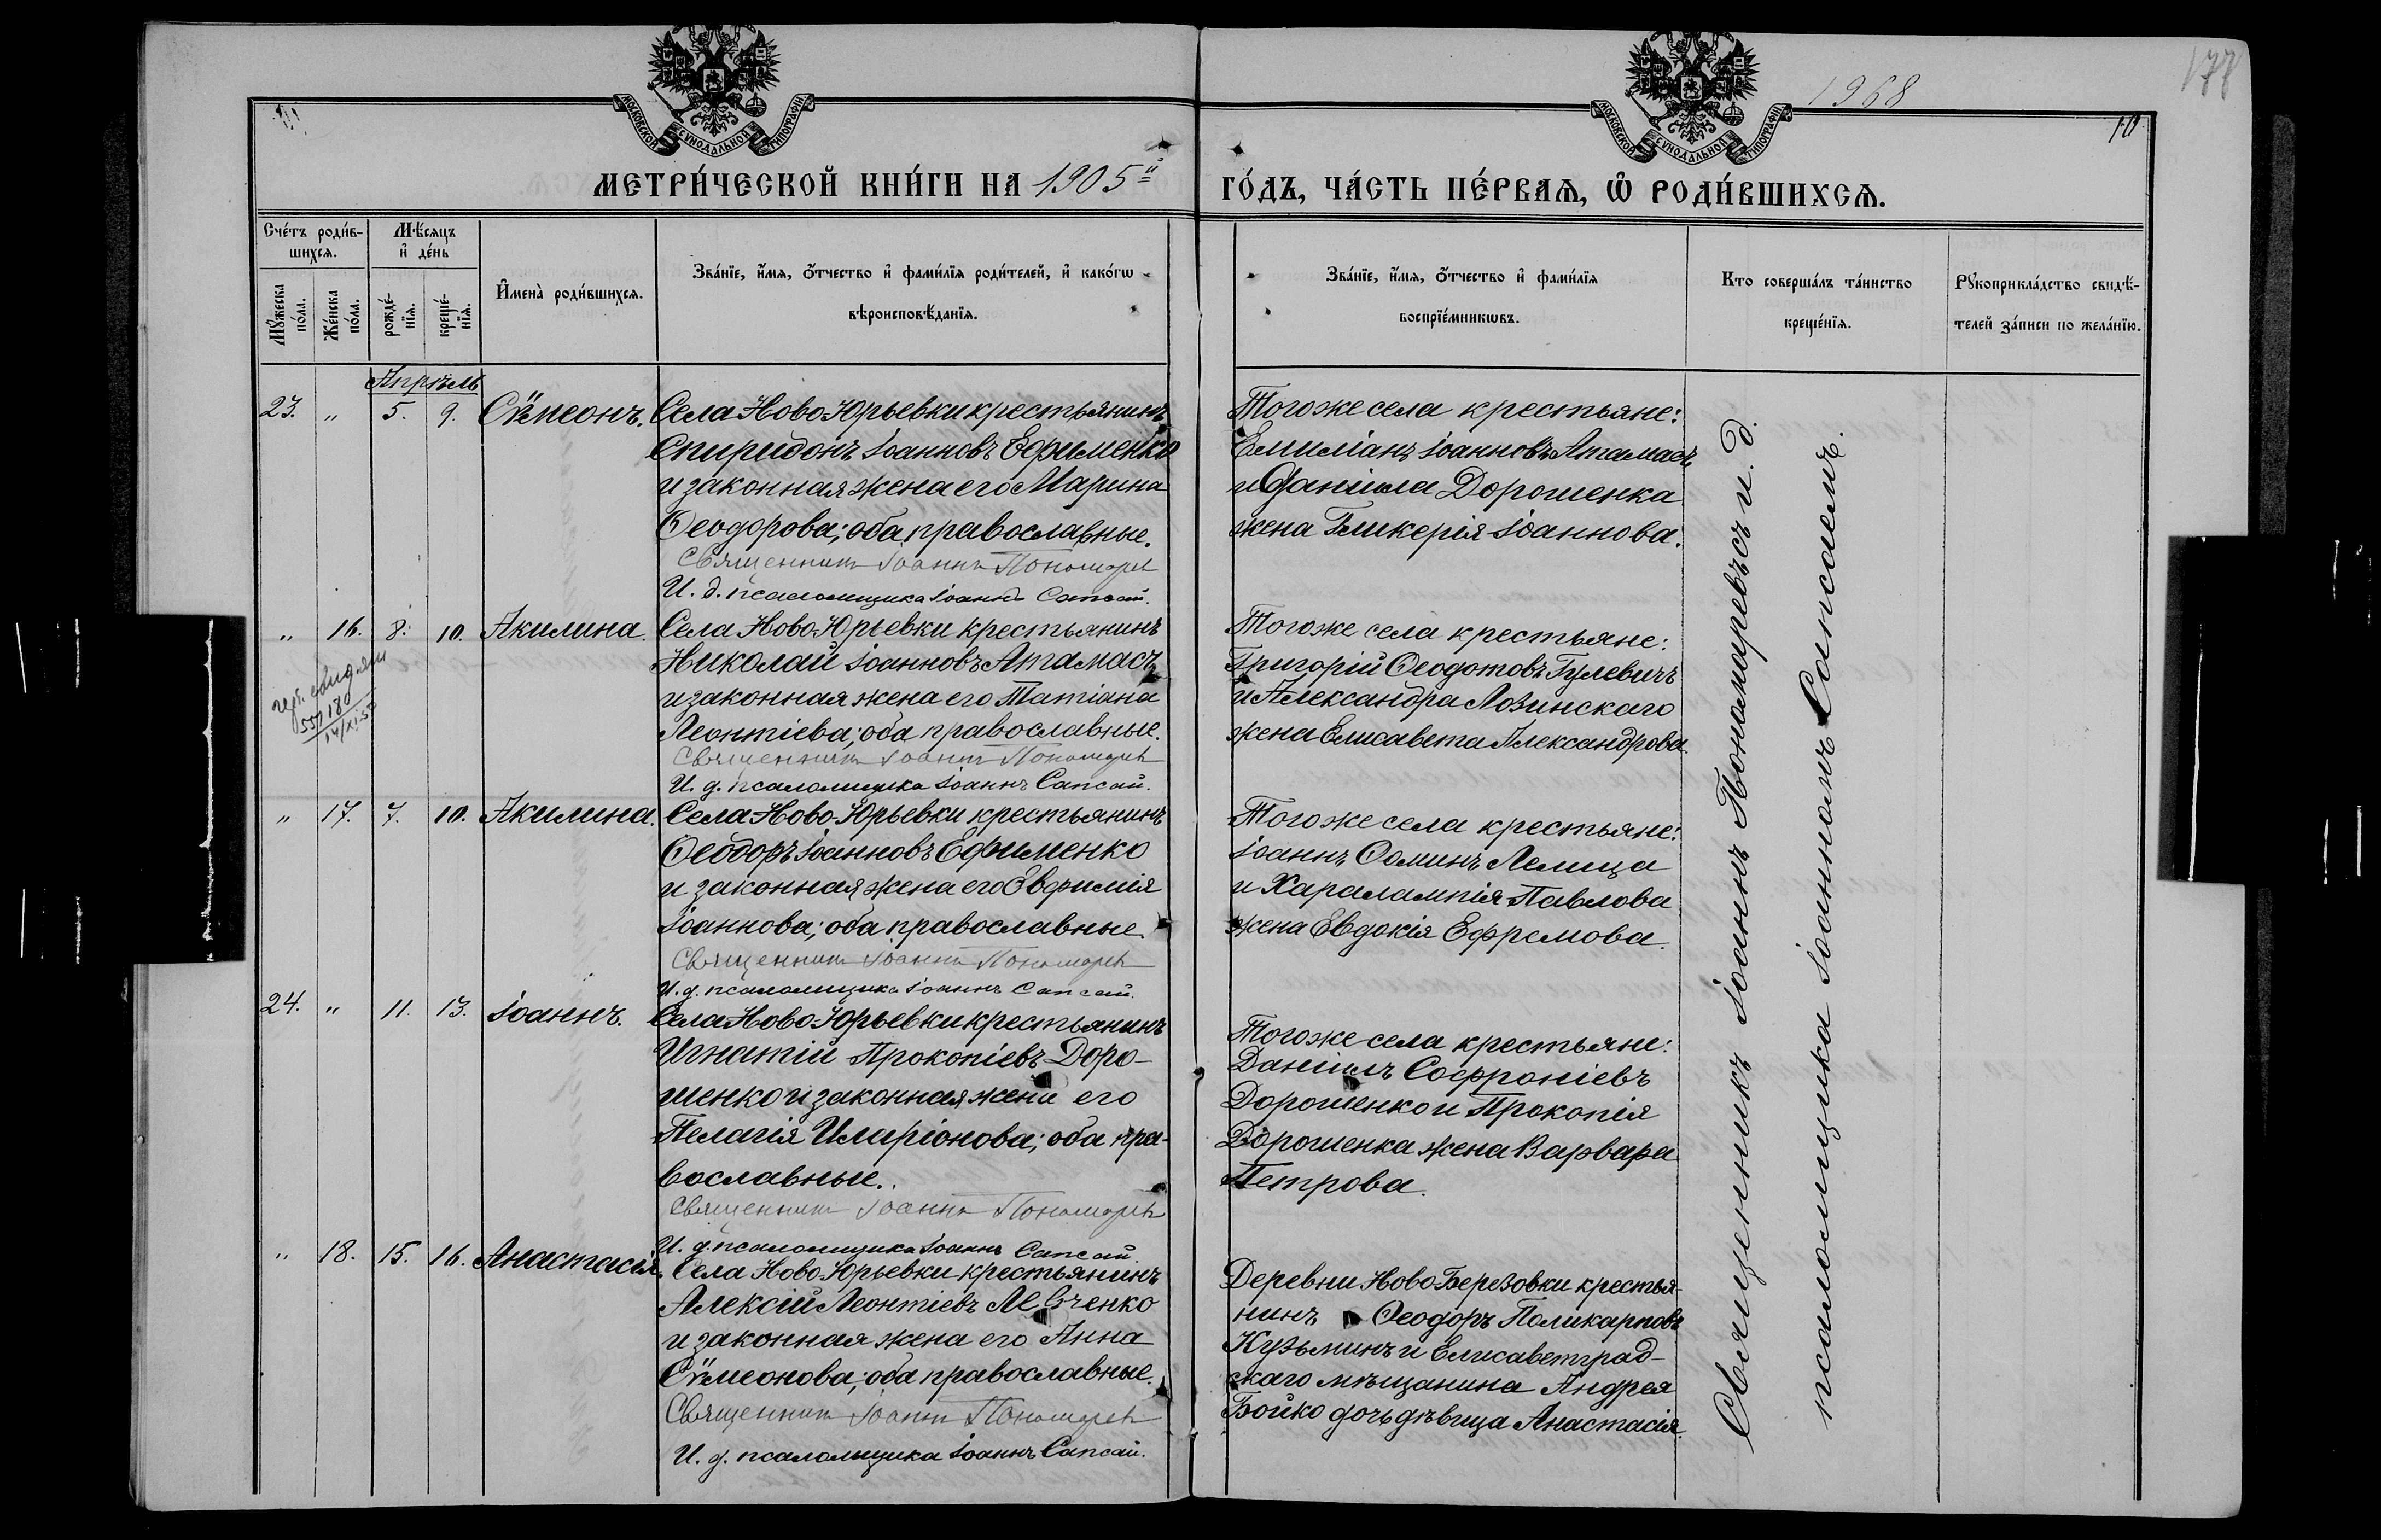 1968
177
10.
МОСКОВСКОЙ СѴНОДАЛЬНОЙ ТИПОГРАФІИ
МОСКОВСКОЙ СѴНОДАЛЬНОЙ ТИПОГРАФІИ
МЕТРИ́ЧЕСКОЙ КНИ́ГИ НА 1905й
ГО́ДЪ, ЧА́СТЬ ПЕ́РВАѦ, Ѽ РОДИ́ВШИХСѦ.
Сче́тъ роди́вшихсѧ.
Мꙋ́жеска по́ла.
Же́нска по́ла.
Мѣ́сѧцъ и҆ де́нь
рожде́нїѧ.
креще́нїѧ.
И҆мена̀ роди́вшихсѧ.
Зва́нїе, и҆́мѧ, ѻ҆́тчество и҆ фами́лїѧ роди́телей, и҆ како́гѡ
вѣроисповѣ́данїѧ.
Зва́нїе, и҆́мѧ, ѻ҆́тчество и҆ фами́лїѧ
воспрїе́мникѡвъ.
Кто соверша́лъ та́инство
креще́нїѧ.
Рꙋкоприкла́дство свидѣ́-
телей за́писи по жела́нїю.
Апрѣль
23. „ 5. 9. Сѵмеонъ.
Села Ново-Юрьевки крестьянинъ
Спиридонъ Іоанновъ Ефименко
и законная жена его Марина
Ѳеодорова; оба православные.
Священникъ Іоаннъ Пономаревъ
И. д. псаломщика Іоаннъ Сапсай.
Того же села крестьяне:
Емиліанъ Іоанновъ Атамасъ
и Даніила Дорошенка
жена Гликерія Іоаннова.
„ 16. 8. 10. Акилина.
Села Ново-Юрьевки крестьянинъ
Николай Іоанновъ Атамасъ
и законная жена его Татіана
Леонтіева; оба православные.
Священникъ Іоаннъ Пономаревъ
И. д. псаломщика Іоаннъ Сапсай.
Того же села крестьяне:
Григорій Ѳеодотовъ Гулевичъ
и Александра Лозинскаго
жена Елисавета Александрова.
„ 17. 7. 10. Акилина.
Села Ново-Юрьевки крестьянинъ
Ѳеодоръ Іоанновъ Ефименко
и законная жена его Евфимія
Іоаннова; оба православные.
Священникъ Іоаннъ Пономаревъ
И. д. псаломщика Іоаннъ Сапсай.
Того же села крестьяне:
Іоаннъ Ѳоминъ Лемица
и Харалампія Павлова
жена Евдокія Ефремова.
24. „ 11. 13. Іоаннъ.
Села Ново-Юрьевки крестьянинъ
Игнатій Прокопіевъ Доро-
шенко и законная жена его
Пелагія Иларіонова; оба пра-
вославные.
Священникъ Іоаннъ Пономаревъ
И. д. псаломщика Іоаннъ Сапсай
Того же села крестьяне:
Даніилъ Софроніевъ
Дорошенко и Прокопія
Дорошенка жена Варвара
Петрова.
„ 18. 15. 16. Анастасія.
Села Ново-Юрьевки крестьянинъ
Алексій Леонтіевъ Левченко
и законная жена его Анна
Сѵмеонова; оба православные.
Священникъ Іоаннъ Пономаревъ
И. д. псаломщика Іоаннъ Сапсай.
Деревни Ново Березовки крестья-
нинъ Ѳеодоръ Поликарповъ
Кузьминъ и Елисаветград-
скаго мѣщанина Андрея
Бойко дочь дѣвица Анастасія.
Священникъ Іоаннъ Пономаревъ съ и. д.
псаломщика Іоанномъ Сапсаемъ.